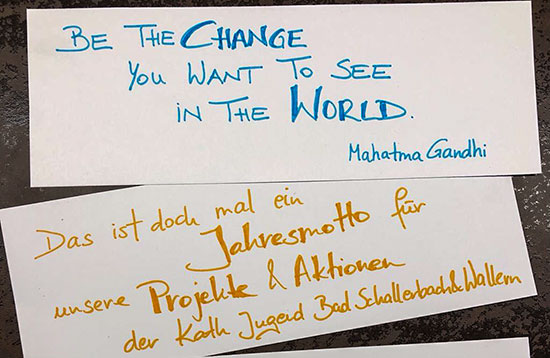 BE THE CHANGE
YOU WANT TO SEE
IN THE WORLD.
Mahatma Gandhi
Das ist doch mal ein
Jahresmotto für
unsere Projekte & Aktionen
der Kath Jugend Bad Schallerbach&Wallern